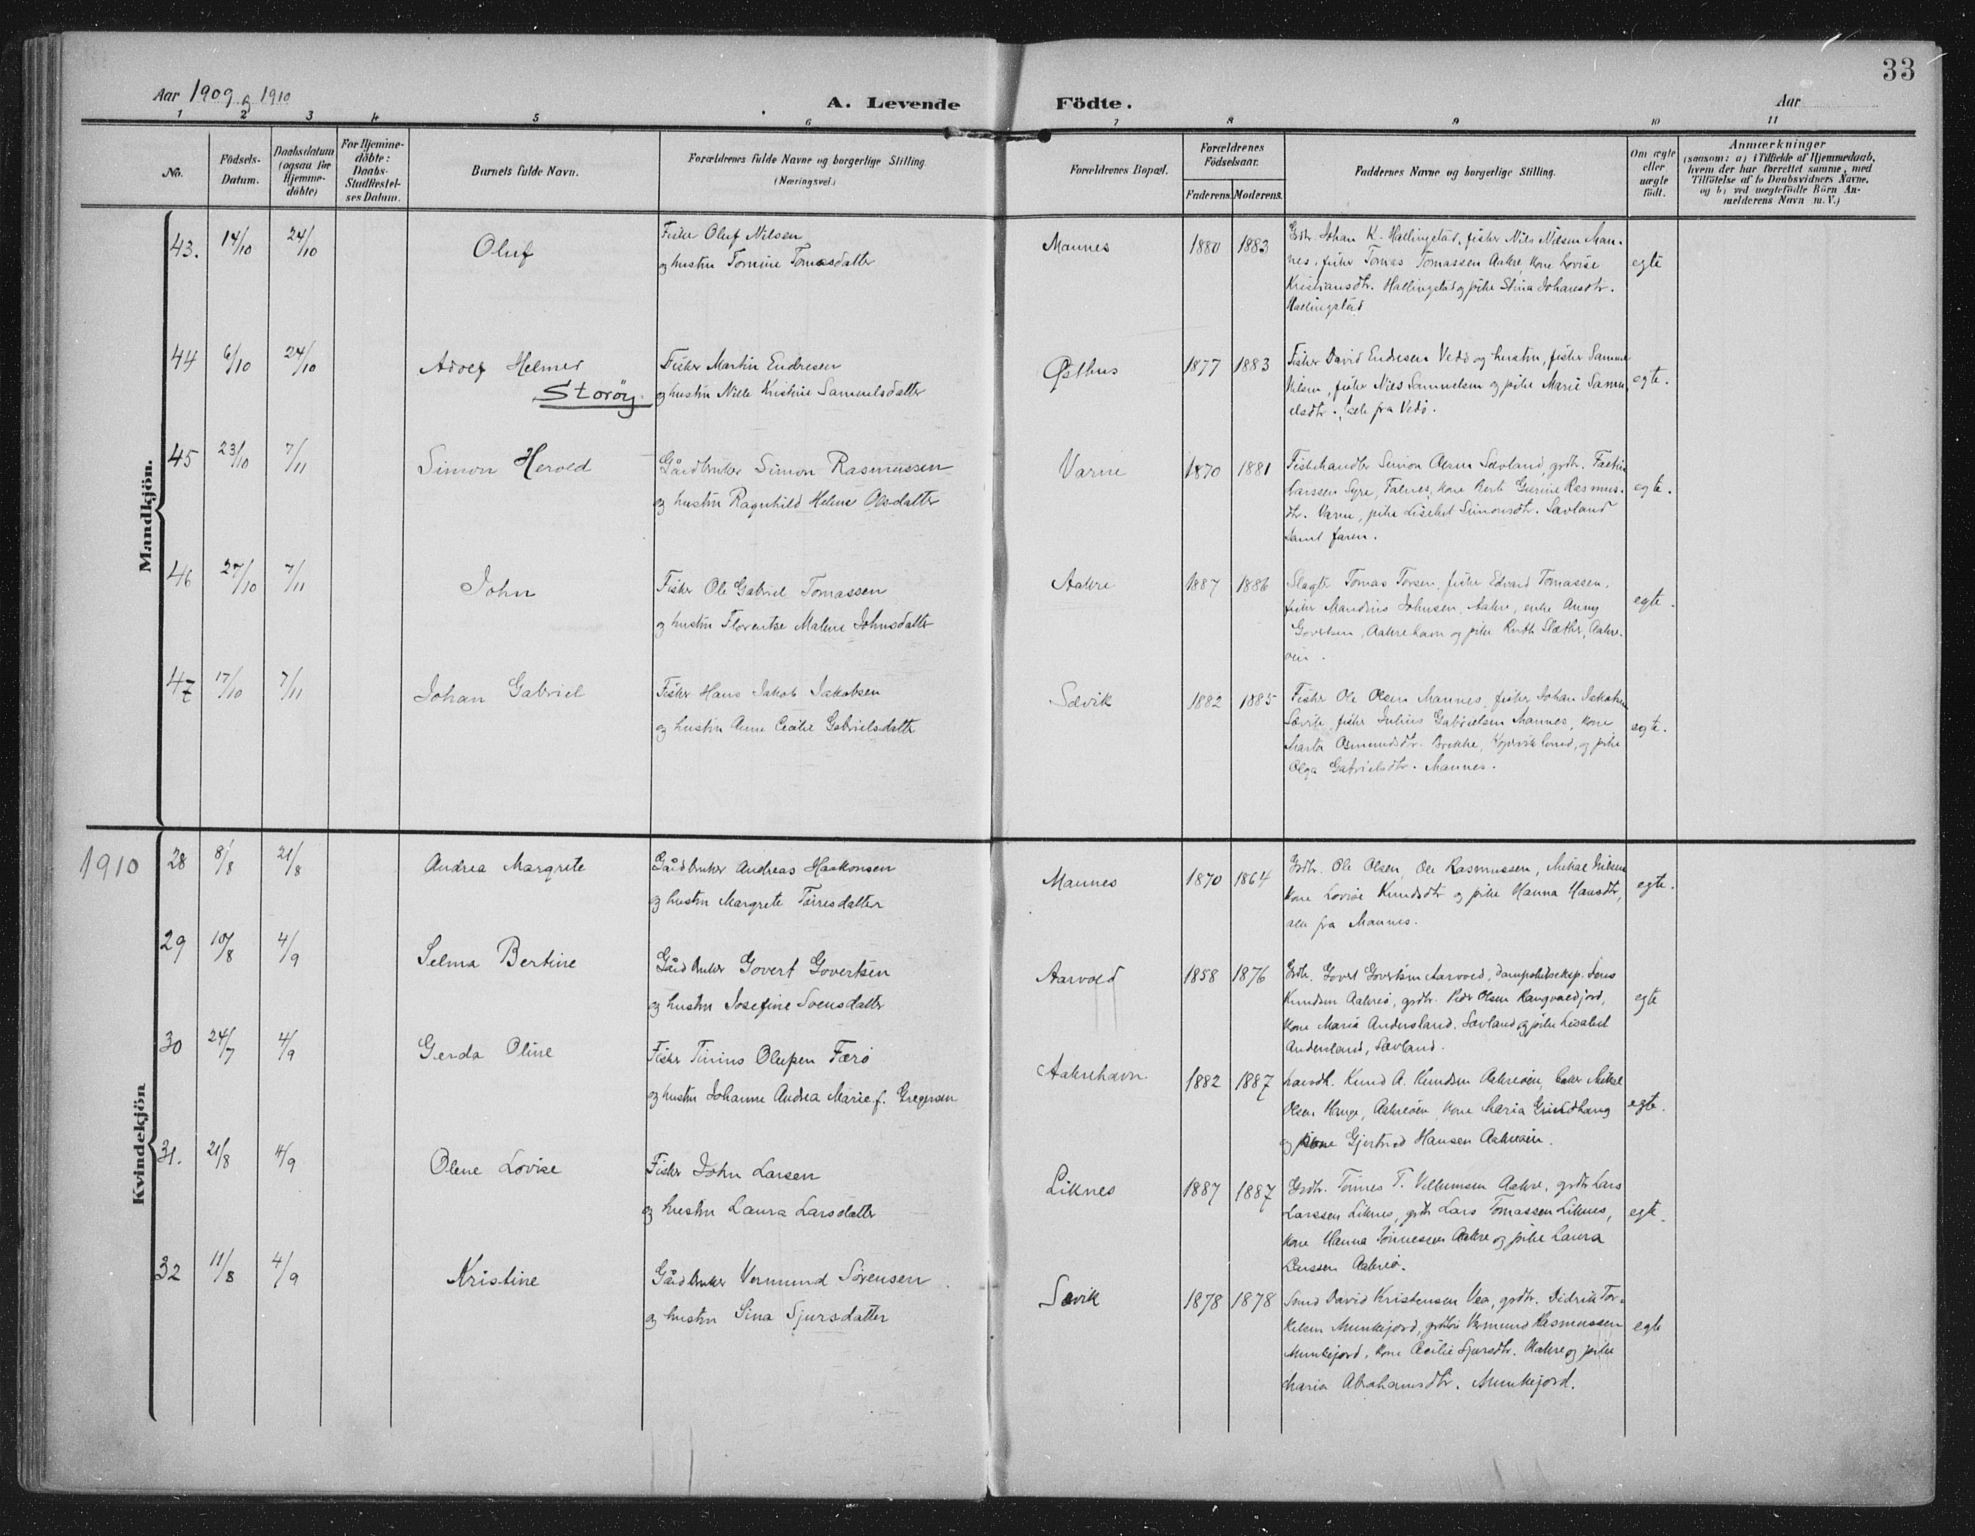 33
Aar 1909 & 1910
A. Levende Födte.
Aar
1 2 3 4 5 6 7 8 9 10 11
No.
Födsels-Datum.
Daabsdatum (ogsaa for Hjemme-döbte)
For Hjemme-döbte: Daabs-Stadfæstel-ses Datum.
Barnets fulde Navn.
Forældrenes fulde Navne og borgerlige Stilling (Næringsvei.)
Forældrenes Bopæl.
Forældrenes Födselsaar.
Faderens. Moderens.
Faddernes Navne og borgerlige Stilling.
Om ægte eller uægte födt.
Anmærkninger
(saasom: a) i Tilfælde af Hjemmedaab,
hvem der har forrettet samme, med
Tilföielse af to Daabsvidners Navne,
og b) ved uægtefödte Börn An-
melderens Navn m. V.)
Mandkjön.
43. 14/10 24/10 Oluf
Fisker Oluf Nilsen
og hustru Tomine Tomasdatter
Mannes 1880 1883
Grdbr. Johan K. Hallingstad, fisker Nils Nilsen Man-
nes, fisker Tomas Tomassen Aakre, kone Lovise
Kristiansdtr. Hallingstad og pike Stina Johansdtr.
Hallingstad
egte
44 6/10 24/10 Adolf Helmer
Storöy.
Fisker Martin Endresen
og hustru Nille Kristine Samuelsdatter
Østhus 1877 1883
Fisker David Endresen Vedö og hustru, fisker
Nilsen, fisker Nils Samuelsen og pike Marie Samu-
elsdtr., fra Vedö.
egte.
45 23/10 7/11 Simon Herold
Gårdbruker Simon Rasmussen
og hustru Ragnhild Helene Olsdatter
Varne 1870 1881
Fiskehandler Simon Olsen Sævland, grdbr.
Larssen Syre, Falnes, kone Berte Gurine Rasmus-
dtr. Varne, pike Lisebet Simonsdtr. Sævland
samt faren.
egte.
46 27/10 7/11 John
Fisker Ole Gabriel Tomassen
og hustru Florentse Malene Johnsdatter
Aakre 1887 1886
Slagter Tomas Torsen, fisker Edvard Tomassen,
fisker Mandius Johnsen, Aakre, enke Anny
Govertsen, Aakrehavn og pike Ruth Slæthe, Aakre-
öen.
egte.
47 17/10 7/11 Johan Gabriel
Fisker Hans Jakob Jakobsen
og hustru Anne Cecilie Gabrielsdatter
Sævik 1882 1885
Fisker Ole Olsen Mannes, fisker Johan Jakobsen
Sævik, fisker Julius Gabrielsen Mannes, kone
Marta Osmundsdtr. Brekke, og pike
Olga Gabrielsdtr. Mannes.
egte.
1910
Kvindekjön
28 8/8 21/8 Andrea Margrete
Gårdbruker Andreas Haakonsen
og hustru Margrete Tørresdatter
Mannes 1870 1864
Grdbr. Ole Olsen, Ole Rasmussen, Mikal
kone Lovise Knudsdtr og pike Hanna Hansdtr,
alle fra Mannes.
egte.
29 10/8 4/9 Selma Bertine
Gårdbruker Govert Govertsen
og hustru Josefine Svensdatter
Aarvold 1858 1876
Grdbr. Govert Govertsen Aarvold, dampskibseksp. Jens
Knudsen Aakreö, grdbr. Peder Olsen Rangvaldjord,
kone Maria Andersland, Sævland og pike Lisabet
Andersland, Sævland.
egte
30 24/7 4/9 Gerda Oline
Fisker Tinius Olufsen Færö
og hustru Johanne Andrea Marie f. Gregersen
Aakrehavn 1882 1887
Landh. Knud A. Knudsen Aakreöen, Mikal
Olsen Hauge, Aakreöen, kone Maria Grindhaug
og kone Gjertrud Hansen Aakreöen.
egte.
31. 21/8 4/9 Olene Lovise
Fisker John Larsen
og hustru Laura Larsdatter
Liknes 1887 1887
Grdbr. Tönnes T. Villumsen Aakre, grdbr Lars
Larssen Liknes, grdbr Lars Tomassen Liknes,
kone Hanna Tönnesen Aakre og pike Laura
Larssen Aakreö.
egte.
32 11/8 4/9 Kristine
Gårdbruker Vermund Sörensen
og hustru Sina Sjursdatter
Sævik 1878 1878
Smed David Kristensen Vea, grdbr. Didrik Tor-
kelsen Munkejord, Vermund Rasmussen
Munkejord, kone Cecilie Sjursdtr. Aakre og pike
Maria Abrahamsdtr. Munkejord.
egte